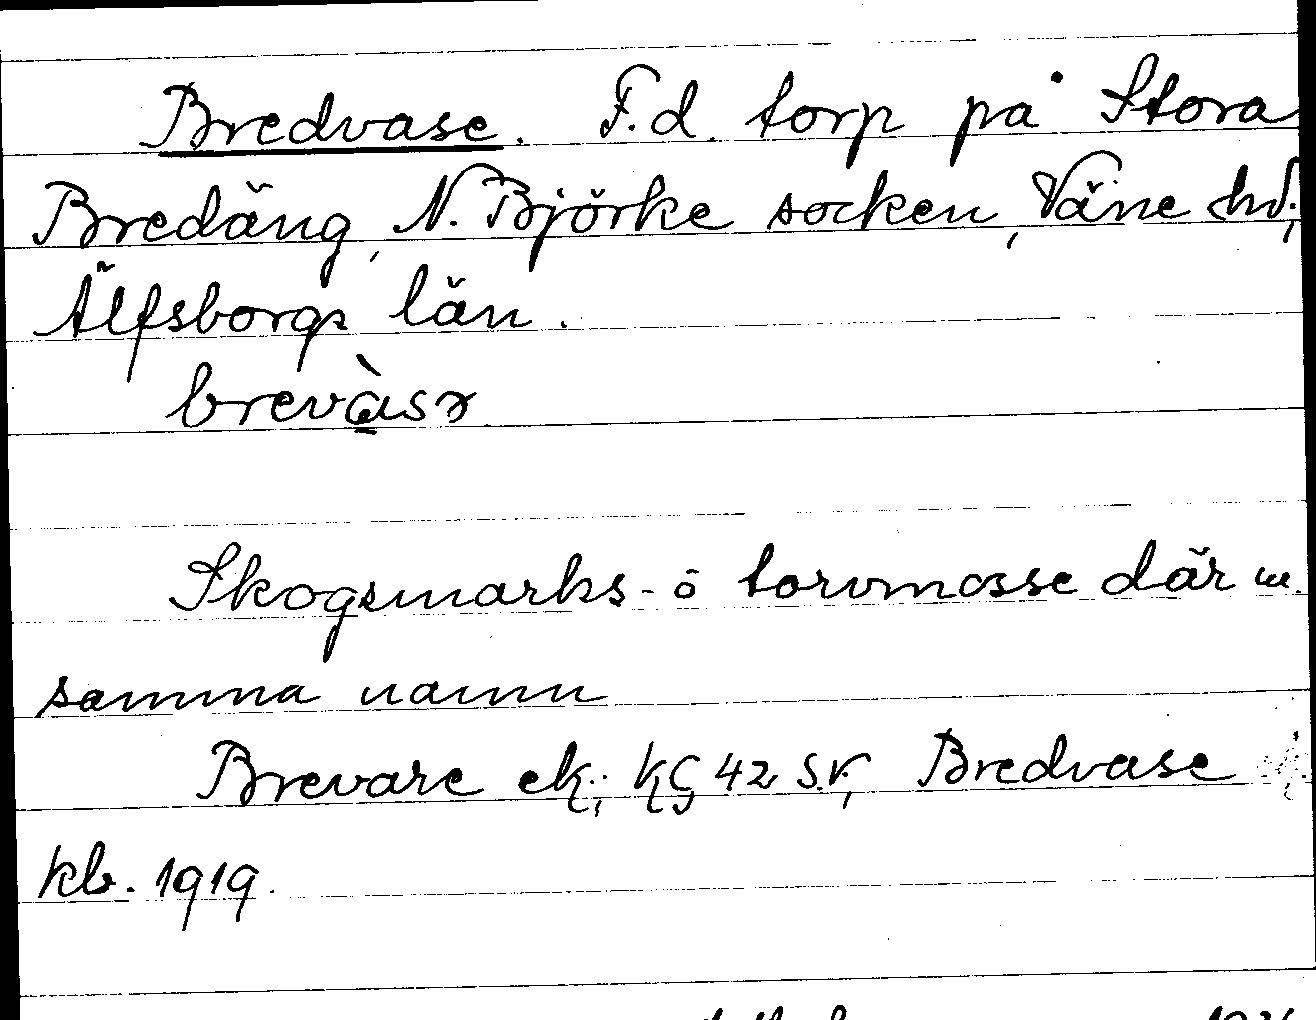 Bredvase. F.d. torp på Stora
Bredäng, N. Björke socken, Väne hd,
Älfsborgs län.
brevàsr
Skogsmarks- o torvmosse där m.
samma namn
Brevase ek; kg 42 S.V., Bredvase
kb. 1919.